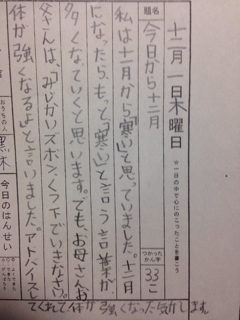 十二月一日木曜日
◎一日の中で心にのこったことを書こう
題名
今日から十二月
つかったかん字
33こ
私は十一月から「寒い」と思っていました。十二月
になったら、もっと「寒い」と言う言葉が、
多くなっていくと思います。でも、お母さん、お
父さんは、「みじかいズボン、くつ下でいきなさい。
体が強くなるよ」と言いました。アドバイスし
てくれて体が強くなった気がします。
おうちの人
今日のはんせい